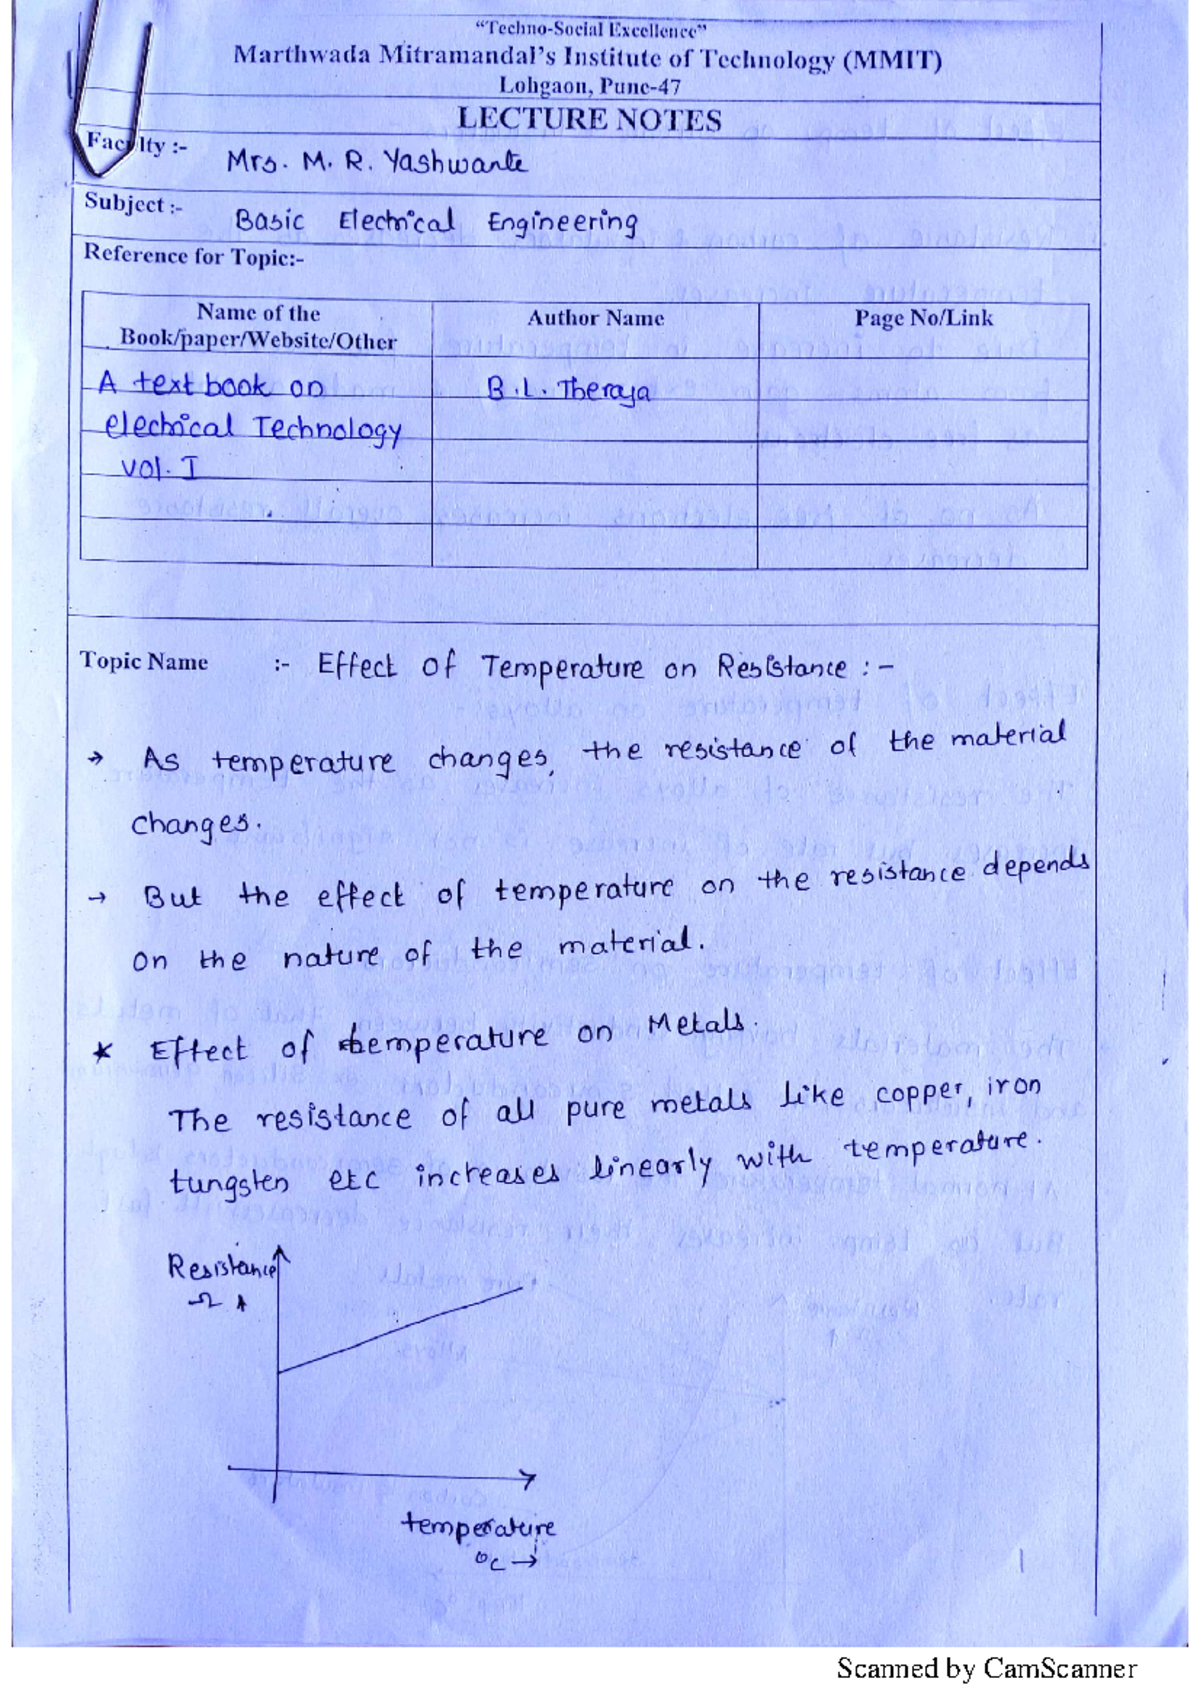 "Techno-Social Excellence"
Marthwada Mitramandal's Institute of Technology (MMIT)
Lohgaon, Pune-47
LECTURE NOTES
Faculty :- Mrs. M. R. Yashwante
Subject :- Basic Electrical Engineering
Reference for Topic:-
Name of the Book/paper/Website/Other Author Name Page No/Link
A text book on B.L. Theraja
electrical Technology
vol. I
Topic Name :- Effect of Temperature on Resistance :-
→ As temperature changes, the resistance of the material
changes.
→ But the effect of temperature on the resistance depends
on the nature of the material.
* Effect of temperature on Metals.
The resistance of all pure metals like copper, iron
tungsten etc increases linearly with temperature.
Resistance
Ω
temperature
°C →
1
Scanned by CamScanner